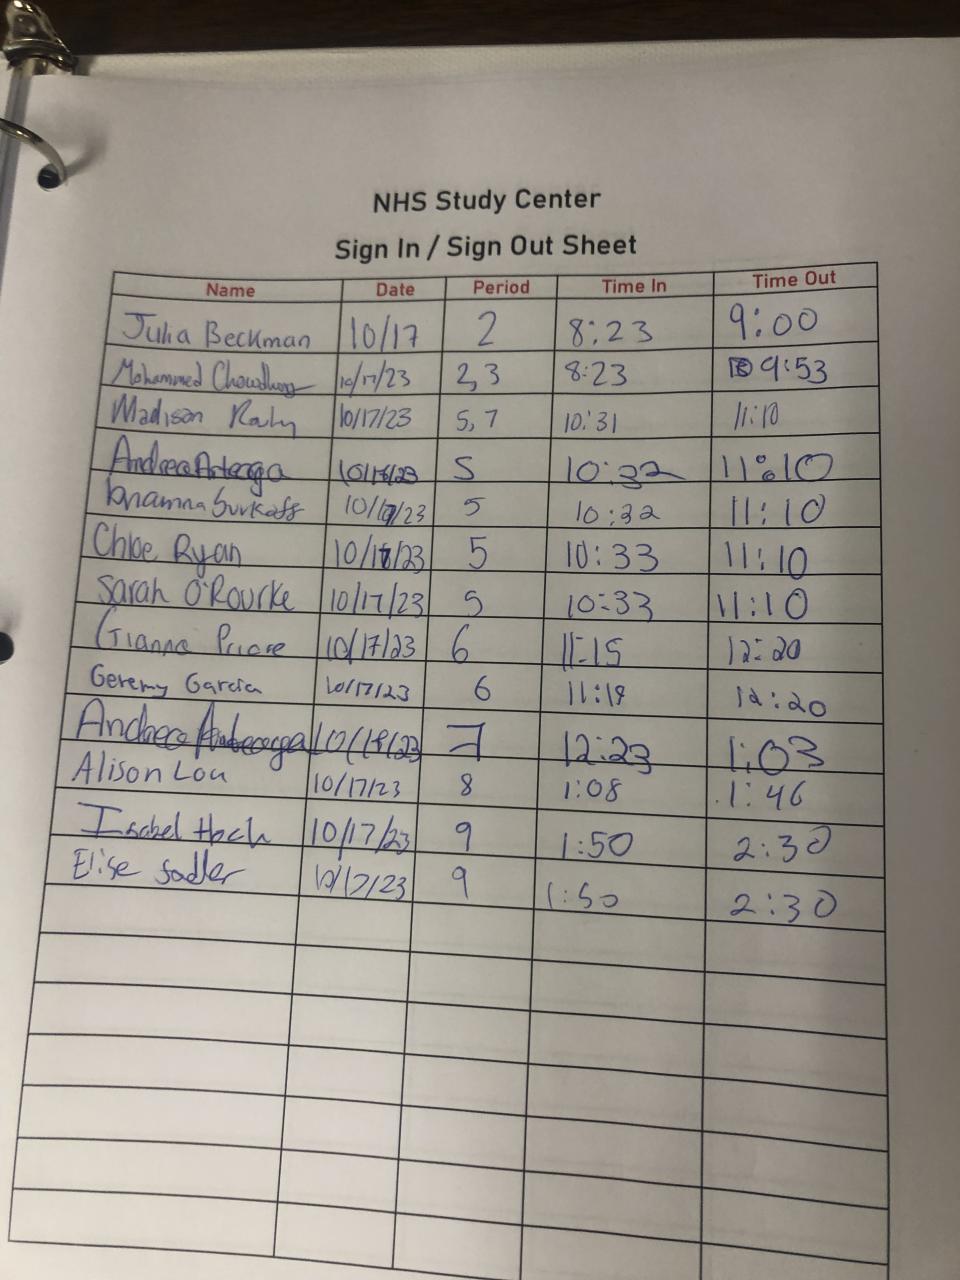 NHS Study Center
Sign In / Sign Out Sheet
Name Date Period Time In Time Out
Julia Beckman 10/17 2 8:23 9:00
Mohammed Chowdhury 10/17/23 2,3 8:23 9:53
Madison 10/17/23 5,7 10:31 11:10
Andrea Arteaga 5 10:32 11:10
5 10:32 11:10
Chloe Ryan 5 10:33 11:10
Sarah O'Rourke 10/17/23 5 10:33 11:10
Gianna Priore 10/17/23 6 11:15 12:20
Geremy Garcia 10/17/23 6 11:19 12:20
Andrea Arteaga 7 12:23 1:03
Alison Lou 10/17/23 8 1:08 1:46
Isabel Hoch 10/17/23 9 1:50 2:30
Elise Sadler 10/17/23 9 1:50 2:30